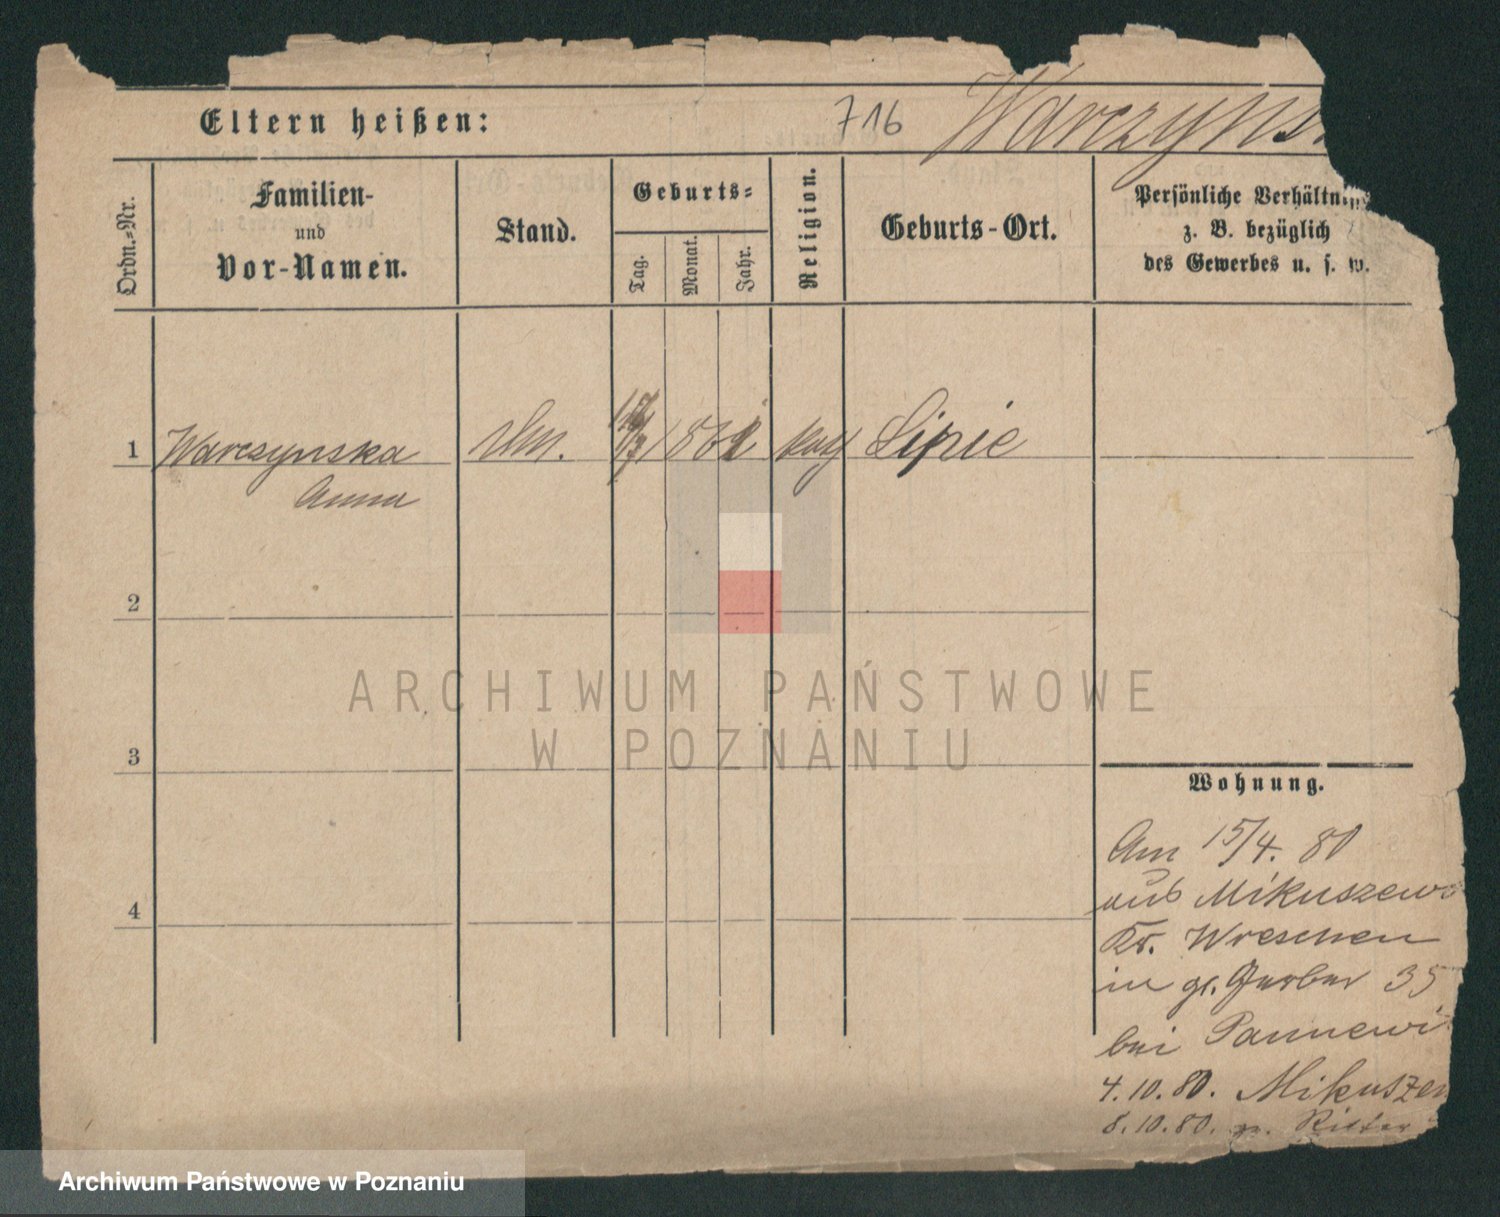 Eltern heißen:
716 Warczyns
Ordn.-Nr.
Familien-
und
Vor-Namen.
Stand.
Geburts-
Tag.
Monat.
Jahr.
Religion.
Geburts-Ort.
Persönliche Verhältniss
z. B. bezüglich
des Gewerbes u. s. w.
1 Warczynska Lipie
Anna
2
3
4
Wohnung.
Am 15/4. 80
aus Mikuszewo
Kr. Wreschen
in gr. Gerber 35
bei Pannewi
4.10.80. Mikuszew
8.10.80. Ritter
ARCHIWUM PAŃSTWOWE
W POZNANIU
Archiwum Państwowe w Poznaniu